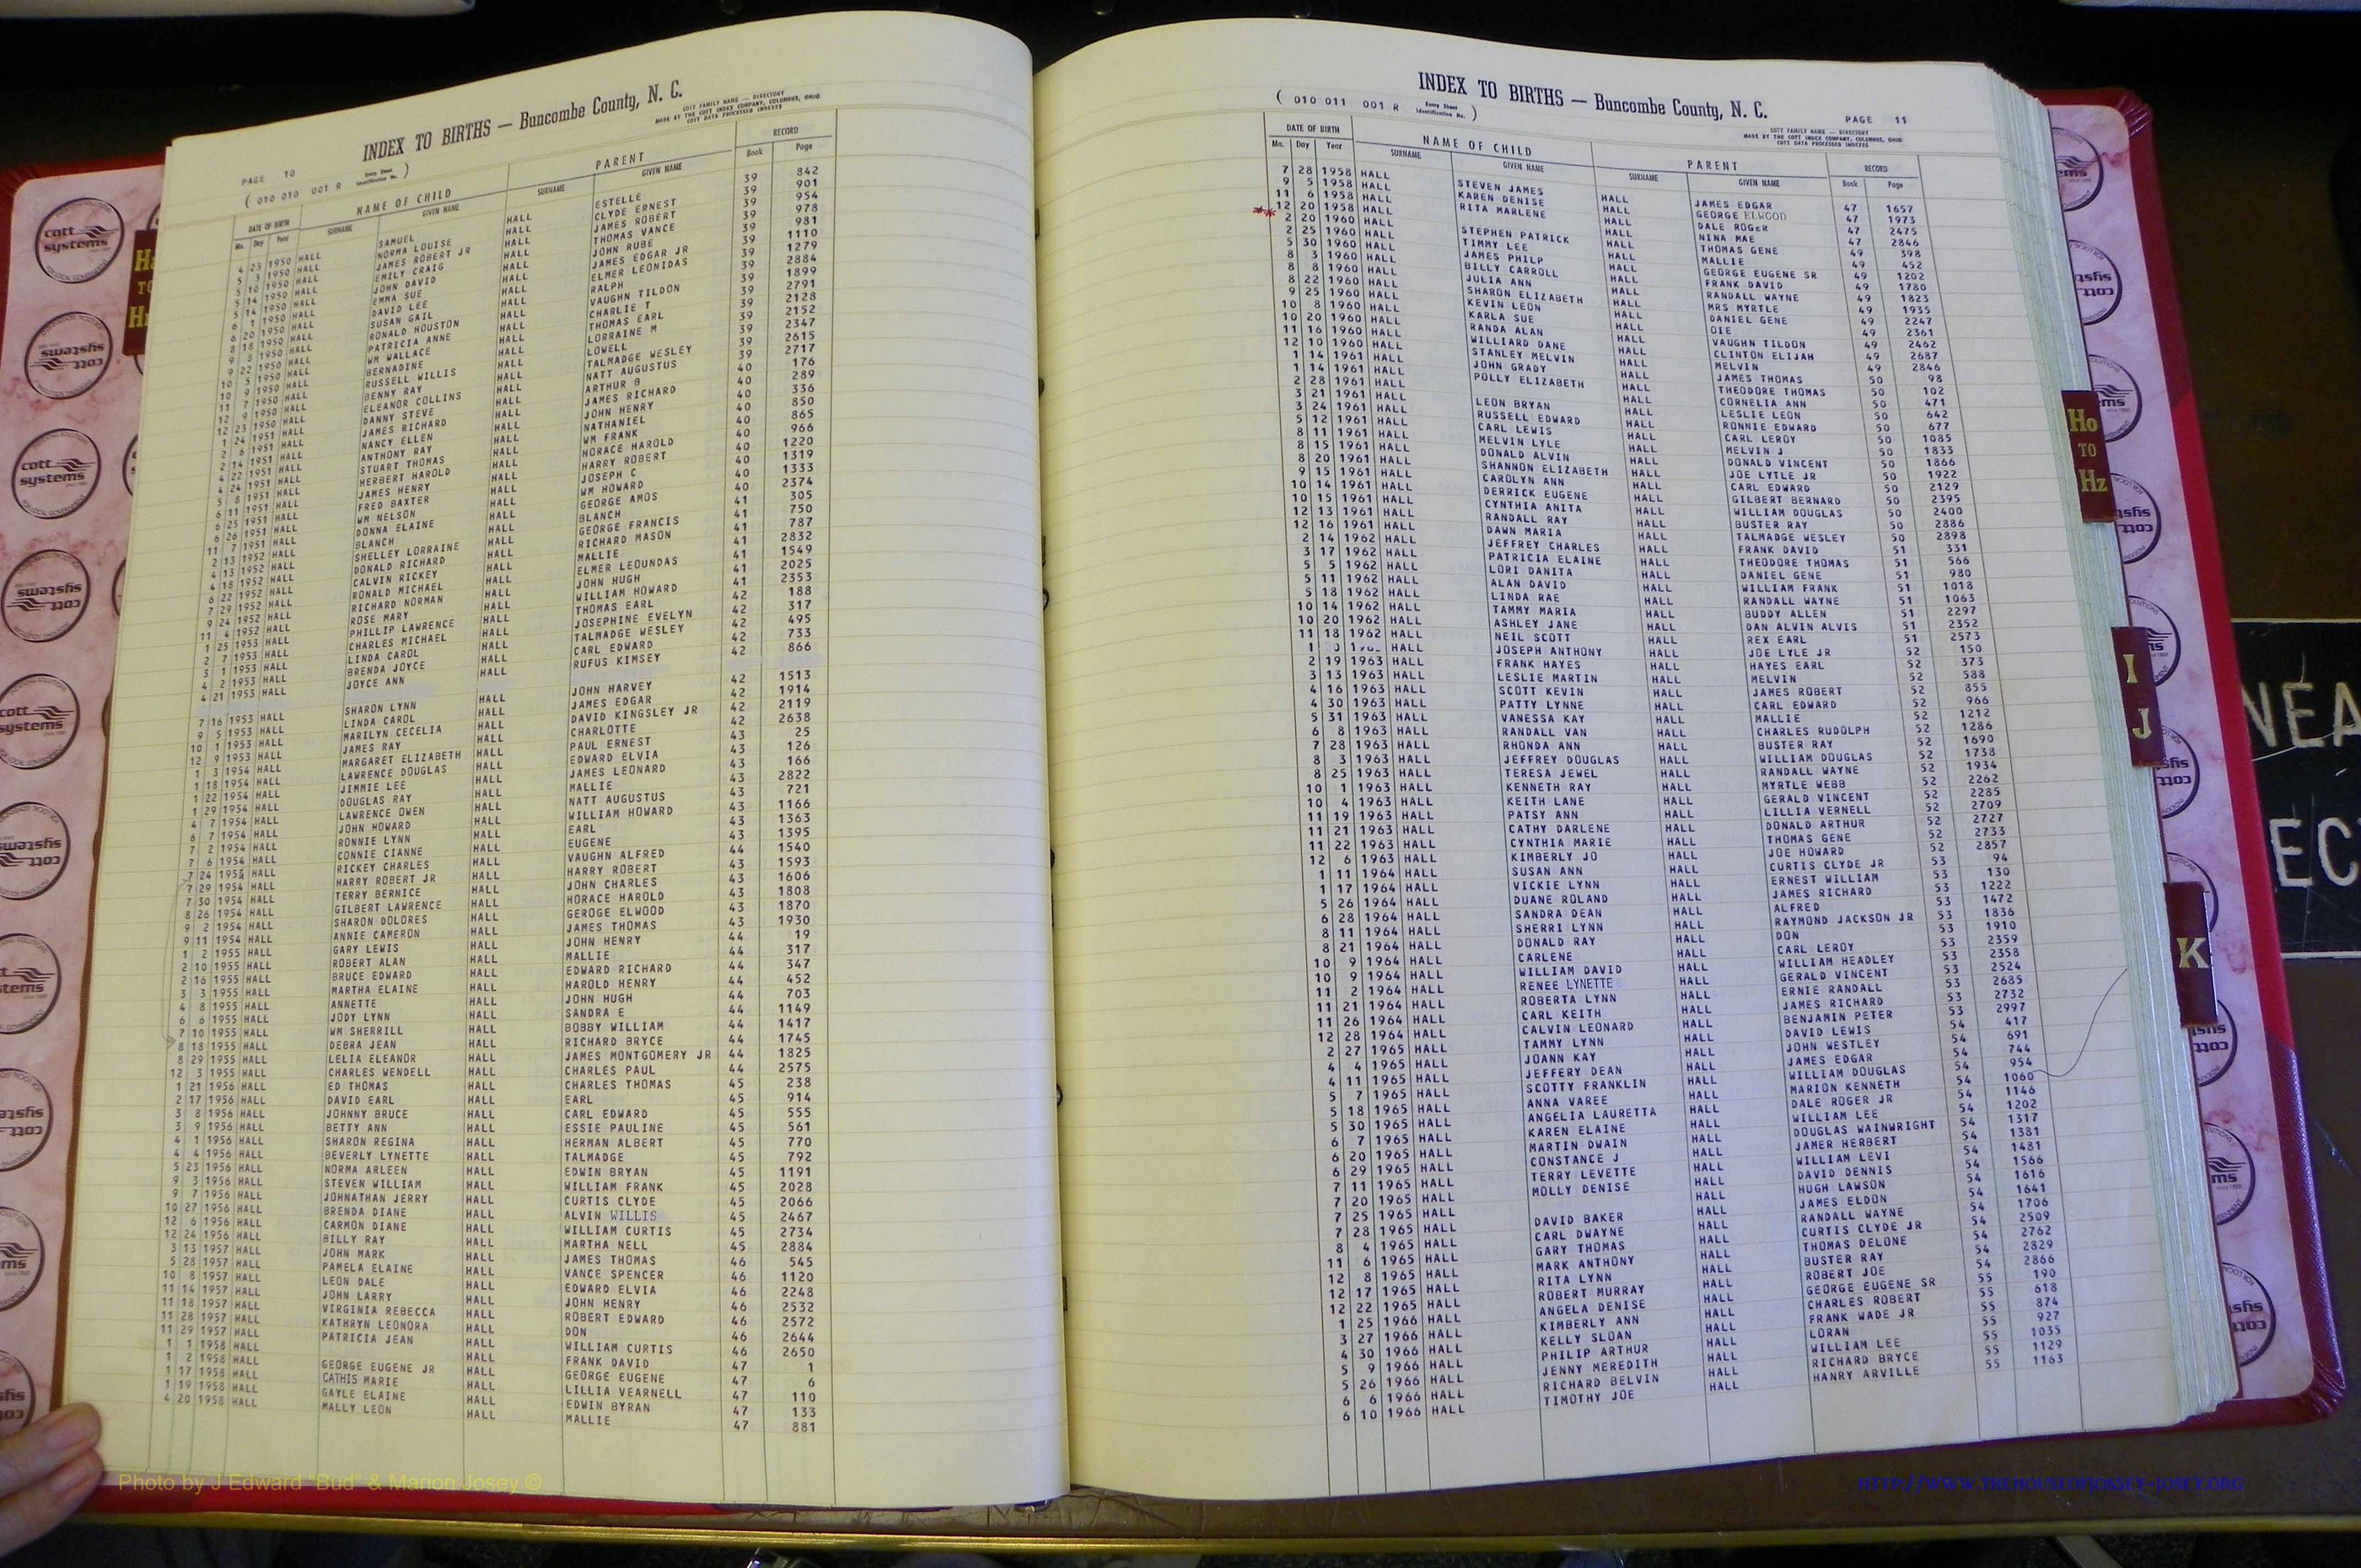 PAGE 10
INDEX TO BIRTHS — Buncombe County, N. C.
COTT FAMILY NAME — DIRECTORY
MADE BY THE COTT INDEX COMPANY, COLUMBUS, OHIO
COTT DATA PROCESSED INDEXES
( 010 010 001 R Entry Sheet Identification No. )
DATE OF BIRTH NAME OF CHILD PARENT RECORD
Mo. Day Year SURNAME GIVEN NAME SURNAME GIVEN NAME Book Page
4 23 1950 HALL SAMUEL HALL ESTELLE 39 842
5 3 1950 HALL NORMA LOUISE HALL CLYDE ERNEST 39 901
5 10 1950 HALL JAMES ROBERT JR HALL JAMES ROBERT 39 954
5 14 1950 HALL EMILY CRAIG HALL THOMAS VANCE 39 978
5 14 1950 HALL JOHN DAVID HALL JOHN RUBE 39 981
6 1 1950 HALL EMMA SUE HALL JAMES EDGAR JR 39 1110
6 20 1950 HALL DAVID LEE HALL ELMER LEONIDAS 39 1279
8 18 1950 HALL SUSAN GAIL HALL RALPH 39 2884
9 8 1950 HALL RONALD HOUSTON HALL VAUGHN TILDON 39 1899
9 22 1950 HALL PATRICIA ANNE HALL CHARLIE T 39 2791
10 5 1950 HALL WM WALLACE HALL THOMAS EARL 39 2128
10 9 1950 HALL BERNADINE HALL LORRAINE M 39 2152
11 7 1950 HALL RUSSELL WILLIS HALL LOWELL 39 2347
12 9 1950 HALL BENNY RAY HALL TALMADGE WESLEY 39 2615
12 23 1950 HALL ELEANOR COLLINS HALL NATT AUGUSTUS 39 2717
1 24 1951 HALL DANNY STEVE HALL ARTHUR B 40 176
2 6 1951 HALL JAMES RICHARD HALL JAMES RICHARD 40 289
2 14 1951 HALL NANCY ELLEN HALL JOHN HENRY 40 336
4 22 1951 HALL ANTHONY RAY HALL NATHANIEL 40 850
4 24 1951 HALL STUART THOMAS HALL WM FRANK 40 865
5 8 1951 HALL HERBERT HAROLD HALL HORACE HAROLD 40 966
6 11 1951 HALL JAMES HENRY HALL HARRY ROBERT 40 1220
6 25 1951 HALL FRED BAXTER HALL JOSEPH C 40 1319
6 26 1951 HALL WM NELSON HALL WM HOWARD 40 1333
11 7 1951 HALL DONNA ELAINE HALL GEORGE AMOS 40 2374
2 13 1952 HALL BLANCH HALL BLANCH 41 305
4 13 1952 HALL SHELLEY LORRAINE HALL GEORGE FRANCIS 41 750
4 18 1952 HALL DONALD RICHARD HALL RICHARD MASON 41 787
6 22 1952 HALL CALVIN RICKEY HALL MALLIE 41 2832
7 29 1952 HALL RONALD MICHAEL HALL ELMER LEOUNDAS 41 1549
9 24 1952 HALL RICHARD NORMAN HALL JOHN HUGH 41 2025
11 4 1952 HALL ROSE MARY HALL WILLIAM HOWARD 41 2353
1 25 1953 HALL PHILLIP LAWRENCE HALL THOMAS EARL 42 188
2 7 1953 HALL CHARLES MICHAEL HALL JOSEPHINE EVELYN 42 317
3 1 1953 HALL LINDA CAROL HALL TALMADGE WESLEY 42 495
4 2 1953 HALL BRENDA JOYCE HALL CARL EDWARD 42 733
4 21 1953 HALL JOYCE ANN HALL RUFUS KIMSEY 42 866
7 16 1953 HALL SHARON LYNN HALL JOHN HARVEY 42 1513
9 5 1953 HALL LINDA CAROL HALL JAMES EDGAR 42 1914
10 1 1953 HALL MARILYN CECELIA HALL DAVID KINGSLEY JR 42 2119
12 9 1953 HALL JAMES RAY HALL CHARLOTTE 42 2638
1 3 1954 HALL MARGARET ELIZABETH HALL PAUL ERNEST 43 25
1 18 1954 HALL LAWRENCE DOUGLAS HALL EDWARD ELVIA 43 126
1 22 1954 HALL JIMMIE LEE HALL JAMES LEONARD 43 166
1 29 1954 HALL DOUGLAS RAY HALL MALLIE 43 2822
4 7 1954 HALL LAWRENCE OWEN HALL NATT AUGUSTUS 43 721
6 7 1954 HALL JOHN HOWARD HALL WILLIAM HOWARD 43 1166
7 2 1954 HALL RONNIE LYNN HALL EARL 43 1363
7 6 1954 HALL CONNIE CIANNE HALL EUGENE 43 1395
7 24 1955 HALL RICKEY CHARLES HALL VAUGHN ALFRED 44 1540
7 29 1954 HALL HARRY ROBERT JR HALL HARRY ROBERT 43 1593
7 30 1954 HALL TERRY BERNICE HALL JOHN CHARLES 43 1606
8 26 1954 HALL GILBERT LAWRENCE HALL HORACE HAROLD 43 1808
9 2 1954 HALL SHARON DOLORES HALL GEROGE ELWOOD 43 1870
9 11 1954 HALL ANNIE CAMERON HALL JAMES THOMAS 43 1930
1 2 1955 HALL GARY LEWIS HALL JOHN HENRY 44 19
2 10 1955 HALL ROBERT ALAN HALL MALLIE 44 317
2 16 1955 HALL BRUCE EDWARD HALL EDWARD RICHARD 44 347
3 3 1955 HALL MARTHA ELAINE HALL HAROLD HENRY 44 452
4 8 1955 HALL ANNETTE HALL JOHN HUGH 44 703
6 6 1955 HALL JODY LYNN HALL SANDRA E 44 1149
7 10 1955 HALL WM SHERRILL HALL BOBBY WILLIAM 44 1417
8 18 1955 HALL DEBRA JEAN HALL RICHARD BRYCE 44 1745
8 29 1955 HALL LELIA ELEANOR HALL JAMES MONTGOMERY JR 44 1825
12 3 1955 HALL CHARLES WENDELL HALL CHARLES PAUL 44 2575
1 21 1956 HALL ED THOMAS HALL CHARLES THOMAS 45 238
2 17 1956 HALL DAVID EARL HALL EARL 45 914
3 8 1956 HALL JOHNNY BRUCE HALL CARL EDWARD 45 555
3 9 1956 HALL BETTY ANN HALL ESSIE PAULINE 45 561
4 1 1956 HALL SHARON REGINA HALL HERMAN ALBERT 45 770
4 4 1956 HALL BEVERLY LYNETTE HALL TALMADGE 45 792
5 23 1956 HALL NORMA ARLEEN HALL EDWIN BRYAN 45 1191
9 3 1956 HALL STEVEN WILLIAM HALL WILLIAM FRANK 45 2028
9 7 1956 HALL JOHNATHAN JERRY HALL CURTIS CLYDE 45 2066
10 27 1956 HALL BRENDA DIANE HALL ALVIN WILLIS 45 2467
12 6 1956 HALL CARMON DIANE HALL WILLIAM CURTIS 45 2734
12 24 1956 HALL BILLY RAY HALL MARTHA NELL 45 2884
3 13 1957 HALL JOHN MARK HALL JAMES THOMAS 46 545
5 28 1957 HALL PAMELA ELAINE HALL VANCE SPENCER 46 1120
10 8 1957 HALL LEON DALE HALL EDWARD ELVIA 46 2248
11 14 1957 HALL JOHN LARRY HALL JOHN HENRY 46 2532
11 18 1957 HALL VIRGINIA REBECCA HALL ROBERT EDWARD 46 2572
11 28 1957 HALL KATHRYN LEONORA HALL DON 46 2644
11 29 1957 HALL PATRICIA JEAN HALL WILLIAM CURTIS 46 2650
1 1 1958 HALL HALL FRANK DAVID 47 1
1 2 1958 HALL GEORGE EUGENE JR HALL GEORGE EUGENE 47 6
1 17 1958 HALL CATHIS MARIE HALL LILLIA VEARNELL 47 110
1 19 1958 HALL GAYLE ELAINE HALL EDWIN BYRAN 47 133
4 20 1958 HALL MALLY LEON HALL MALLIE 47 881
INDEX TO BIRTHS — Buncombe County, N. C.
PAGE 11
( 010 011 001 R Entry Sheet Identification No. )
COTT FAMILY NAME — DIRECTORY
MADE BY THE COTT INDEX COMPANY, COLUMBUS, OHIO
COTT DATA PROCESSED INDEXES
DATE OF BIRTH NAME OF CHILD PARENT RECORD
Mo. Day Year SURNAME GIVEN NAME SURNAME GIVEN NAME Book Page
7 28 1958 HALL STEVEN JAMES HALL JAMES EDGAR 47 1657
9 5 1958 HALL KAREN DENISE HALL GEORGE ELWOOD 47 1973
11 6 1958 HALL RITA MARLENE HALL DALE ROGER 47 2475
12 20 1958 HALL HALL NINA MAE 47 2846
2 20 1960 HALL STEPHEN PATRICK HALL THOMAS GENE 49 398
2 25 1960 HALL TIMMY LEE HALL MALLIE 49 452
5 30 1960 HALL JAMES PHILP HALL GEORGE EUGENE SR 49 1202
8 3 1960 HALL BILLY CARROLL HALL FRANK DAVID 49 1780
8 8 1960 HALL JULIA ANN HALL RANDALL WAYNE 49 1823
8 22 1960 HALL SHARON ELIZABETH HALL MRS MYRTLE 49 1935
9 25 1960 HALL KEVIN LEON HALL DANIEL GENE 49 2247
10 8 1960 HALL KARLA SUE HALL OIE 49 2361
10 20 1960 HALL RANDA ALAN HALL VAUGHN TILDON 49 2462
11 16 1960 HALL WILLIARD DANE HALL CLINTON ELIJAH 49 2687
12 10 1960 HALL STANLEY MELVIN HALL MELVIN 49 2846
1 14 1961 HALL JOHN GRADY HALL JAMES THOMAS 50 98
1 14 1961 HALL POLLY ELIZABETH HALL THEODORE THOMAS 50 102
2 28 1961 HALL HALL CORNELIA ANN 50 471
3 21 1961 HALL LEON BRYAN HALL LESLIE LEON 50 642
3 24 1961 HALL RUSSELL EDWARD HALL RONNIE EDWARD 50 677
5 12 1961 HALL CARL LEWIS HALL CARL LEROY 50 1085
8 11 1961 HALL MELVIN LYLE HALL MELVIN J 50 1833
8 15 1961 HALL DONALD ALVIN HALL DONALD VINCENT 50 1866
8 20 1961 HALL SHANNON ELIZABETH HALL JOE LYTLE JR 50 1922
9 15 1961 HALL CAROLYN ANN HALL CARL EDWARD 50 2129
10 14 1961 HALL DERRICK EUGENE HALL GILBERT BERNARD 50 2395
10 15 1961 HALL CYNTHIA ANITA HALL WILLIAM DOUGLAS 50 2400
12 13 1961 HALL RANDALL RAY HALL BUSTER RAY 50 2886
12 16 1961 HALL DAWN MARIA HALL TALMADGE WESLEY 50 2898
2 14 1962 HALL JEFFREY CHARLES HALL FRANK DAVID 51 331
3 17 1962 HALL PATRICIA ELAINE HALL THEODORE THOMAS 51 566
5 5 1962 HALL LORI DANITA HALL DANIEL GENE 51 980
5 11 1962 HALL ALAN DAVID HALL WILLIAM FRANK 51 1018
5 18 1962 HALL LINDA RAE HALL RANDALL WAYNE 51 1063
10 14 1962 HALL TAMMY MARIA HALL BUDDY ALLEN 51 2297
10 20 1962 HALL ASHLEY JANE HALL DAN ALVIN ALVIS 51 2352
11 18 1962 HALL NEIL SCOTT HALL REX EARL 51 2573
1 HALL JOSEPH ANTHONY HALL JOE LYLE JR 52 150
2 19 1963 HALL FRANK HAYES HALL HAYES EARL 52 373
3 13 1963 HALL LESLIE MARTIN HALL MELVIN 52 588
4 16 1963 HALL SCOTT KEVIN HALL JAMES ROBERT 52 855
4 30 1963 HALL PATTY LYNNE HALL CARL EDWARD 52 966
5 31 1963 HALL VANESSA KAY HALL MALLIE 52 1212
6 8 1963 HALL RANDALL VAN HALL CHARLES RUDOLPH 52 1286
7 28 1963 HALL RHONDA ANN HALL BUSTER RAY 52 1690
8 3 1963 HALL JEFFREY DOUGLAS HALL WILLIAM DOUGLAS 52 1738
8 25 1963 HALL TERESA JEWEL HALL RANDALL WAYNE 52 1934
10 1 1963 HALL KENNETH RAY HALL MYRTLE WEBB 52 2262
10 4 1963 HALL KEITH LANE HALL GERALD VINCENT 52 2285
11 19 1963 HALL PATSY ANN HALL LILLIA VERNELL 52 2709
11 21 1963 HALL CATHY DARLENE HALL DONALD ARTHUR 52 2727
11 22 1963 HALL CYNTHIA MARIE HALL THOMAS GENE 52 2733
12 6 1963 HALL KIMBERLY JO HALL JOE HOWARD 52 2857
1 11 1964 HALL SUSAN ANN HALL CURTIS CLYDE JR 53 94
1 17 1964 HALL VICKIE LYNN HALL ERNEST WILLIAM 53 130
5 26 1964 HALL DUANE ROLAND HALL JAMES RICHARD 53 1222
6 28 1964 HALL SANDRA DEAN HALL ALFRED 53 1472
8 11 1964 HALL SHERRI LYNN HALL RAYMOND JACKSON JR 53 1836
8 21 1964 HALL DONALD RAY HALL DON 53 1910
10 9 1964 HALL CARLENE HALL CARL LEROY 53 2359
10 9 1964 HALL WILLIAM DAVID HALL WILLIAM HEADLEY 53 2358
11 2 1964 HALL RENEE LYNETTE HALL GERALD VINCENT 53 2524
11 21 1964 HALL ROBERTA LYNN HALL ERNIE RANDALL 53 2685
11 26 1964 HALL CARL KEITH HALL JAMES RICHARD 53 2732
12 28 1964 HALL CALVIN LEONARD HALL BENJAMIN PETER 53 2997
2 27 1965 HALL TAMMY LYNN HALL DAVID LEWIS 54 417
4 4 1965 HALL JOANN KAY HALL JOHN WESTLEY 54 691
4 11 1965 HALL JEFFERY DEAN HALL JAMES EDGAR 54 744
5 7 1965 HALL SCOTTY FRANKLIN HALL WILLIAM DOUGLAS 54 954
5 18 1965 HALL ANNA VAREE HALL MARION KENNETH 54 1060
5 30 1965 HALL ANGELIA LAURETTA HALL DALE ROGER JR 54 1146
6 7 1965 HALL KAREN ELAINE HALL WILLIAM LEE 54 1202
6 20 1965 HALL MARTIN DWAIN HALL DOUGLAS WAINWRIGHT 54 1317
6 29 1965 HALL CONSTANCE J HALL JAMER HERBERT 54 1381
7 11 1965 HALL TERRY LEVETTE HALL WILLIAM LEVI 54 1481
7 20 1965 HALL MOLLY DENISE HALL DAVID DENNIS 54 1566
7 25 1965 HALL HALL HUGH LAWSON 54 1616
7 28 1965 HALL DAVID BAKER HALL JAMES ELDON 54 1641
8 4 1965 HALL CARL DWAYNE HALL RANDALL WAYNE 54 1706
11 6 1965 HALL GARY THOMAS HALL CURTIS CLYDE JR 54 2509
12 8 1965 HALL MARK ANTHONY HALL THOMAS DELONE 54 2762
12 17 1965 HALL RITA LYNN HALL BUSTER RAY 54 2829
12 22 1965 HALL ROBERT MURRAY HALL ROBERT JOE 54 2866
1 25 1966 HALL ANGELA DENISE HALL GEORGE EUGENE SR 55 190
3 27 1966 HALL KIMBERLY ANN HALL CHARLES ROBERT 55 618
4 30 1966 HALL KELLY SLOAN HALL FRANK WADE JR 55 874
5 9 1966 HALL PHILIP ARTHUR HALL LORAN 55 927
5 26 1966 HALL JENNY MEREDITH HALL WILLIAM LEE 55 1035
6 6 1966 HALL RICHARD BELVIN HALL RICHARD BRYCE 55 1129
6 10 1966 HALL TIMOTHY JOE HALL HANRY ARVILLE 55 1163
Ho
TO
Hz
I
J
K
cott systems
Photo by J Edward "Bud" & Marion Josey ©
HTTP://WWW.THEHOUSEOFJOSSEY-JOSEY.ORG